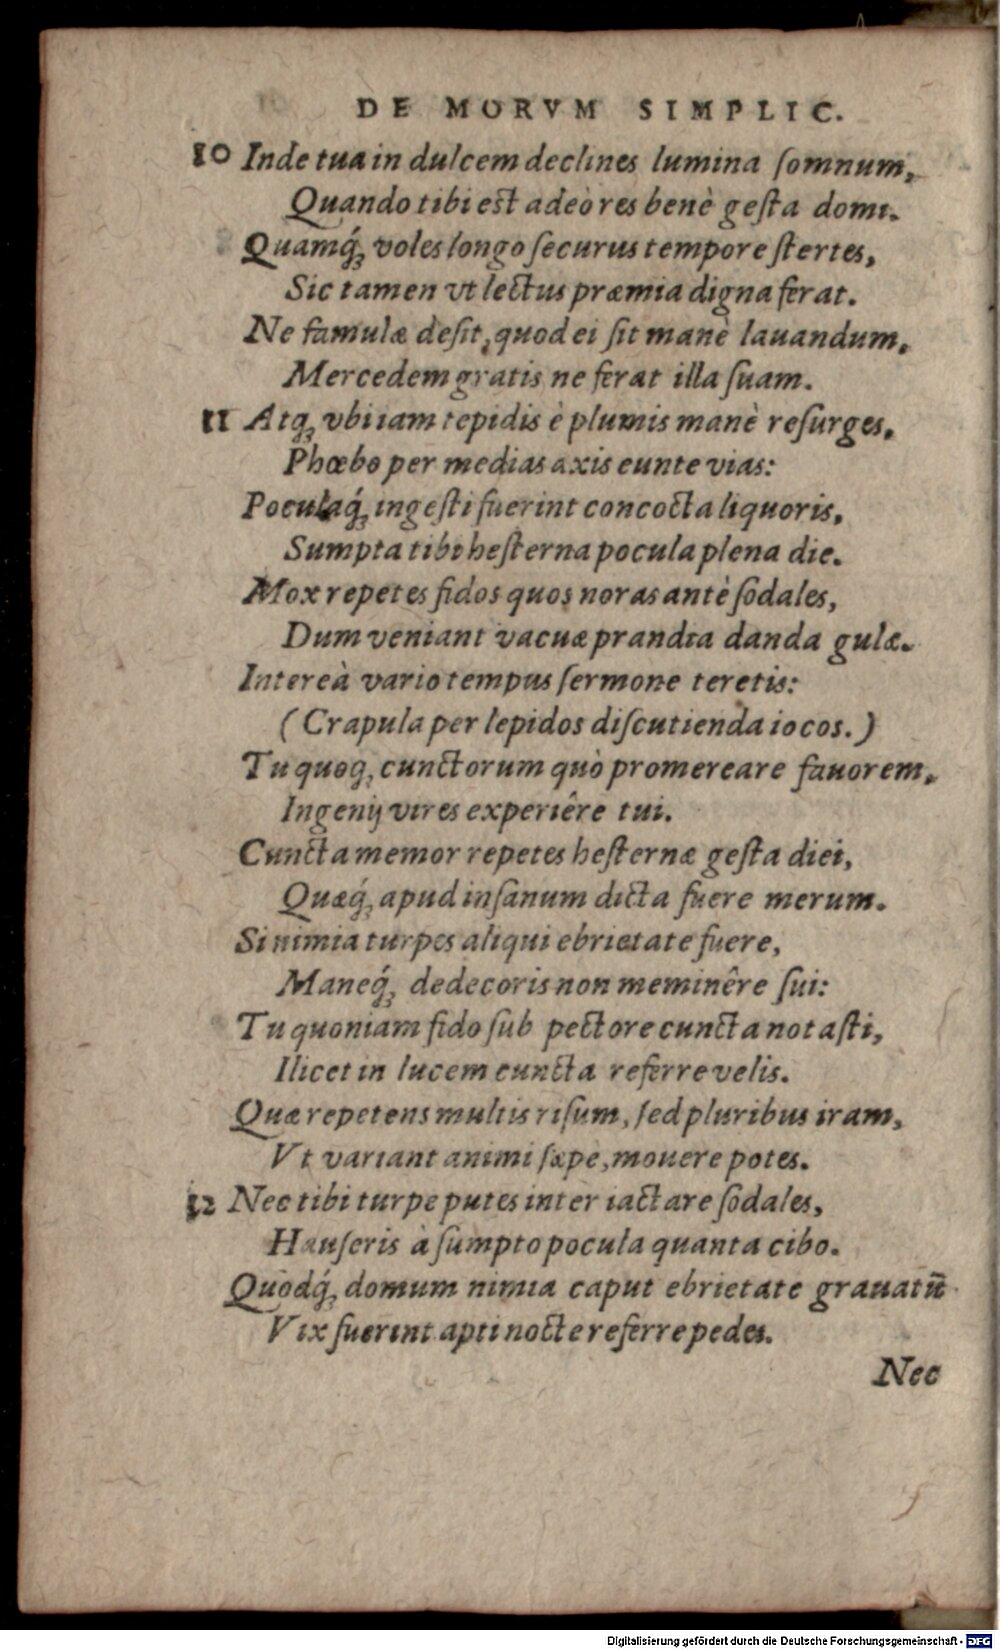 DE MORVM SIMPLIC.
10 Inde tua in dulcem declines lumina ſomnum,
Quando tibi est adeò res benè geſta domi.
Quamq́; voles longo ſecurus tempore ſtertes,
Sic tamen vt lectus præmia digna ferat.
Ne famulæ deſit, quod ei ſit manè lauandum,
Mercedem gratis ne ferat illa ſuam.
11 Atq; vbi iam tepidis è plumis manè reſurges,
Phœbo per medias axis eunte vias:
Poculaq́; ingeſti fuerint concocta liquoris,
Sumpta tibi heſterna pocula plena die.
Mox repetes fidos quos noras antè ſodales,
Dum veniant vacuæ prandia danda gulæ.
Intereà vario tempus ſermone teretis:
(Crapula per lepidos diſcutienda iocos.)
Tu quoq; cunctorum quò promereare fauorem,
Ingenij vires experiêre tui.
Cuncta memor repetes heſternæ geſta diei,
Quæq́; apud inſanum dicta fuere merum.
Si nimia turpes aliqui ebrietate fuere,
Maneq́; dedecoris non meminêre ſui:
Tu quoniam fido ſub pectore cuncta notaſti,
Ilicet in lucem cuncta referre velis.
Quæ repetens multis riſum, ſed pluribus iram,
Vt variant animi ſæpe, mouere potes.
12 Nec tibi turpe putes inter iactare ſodales,
Hauſeris à ſumpto pocula quanta cibo.
Quòdq́; domum nimia caput ebrietate grauatū
Vix fuerint apti nocte referre pedes.
Nec
Digitalisierung gefördert durch die Deutsche Forschungsgemeinschaft - DFG